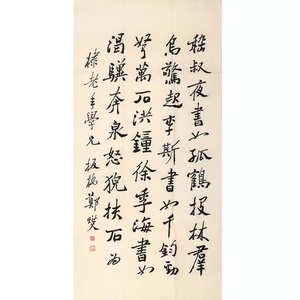 嵇叔夜書如孤鶴投林羣
鳥驚起李斯書如千鈞勁
弩萬石洪鐘徐季海書如
渴驥奔泉怒猊扶石為
棣老年學兄 板橋鄭燮